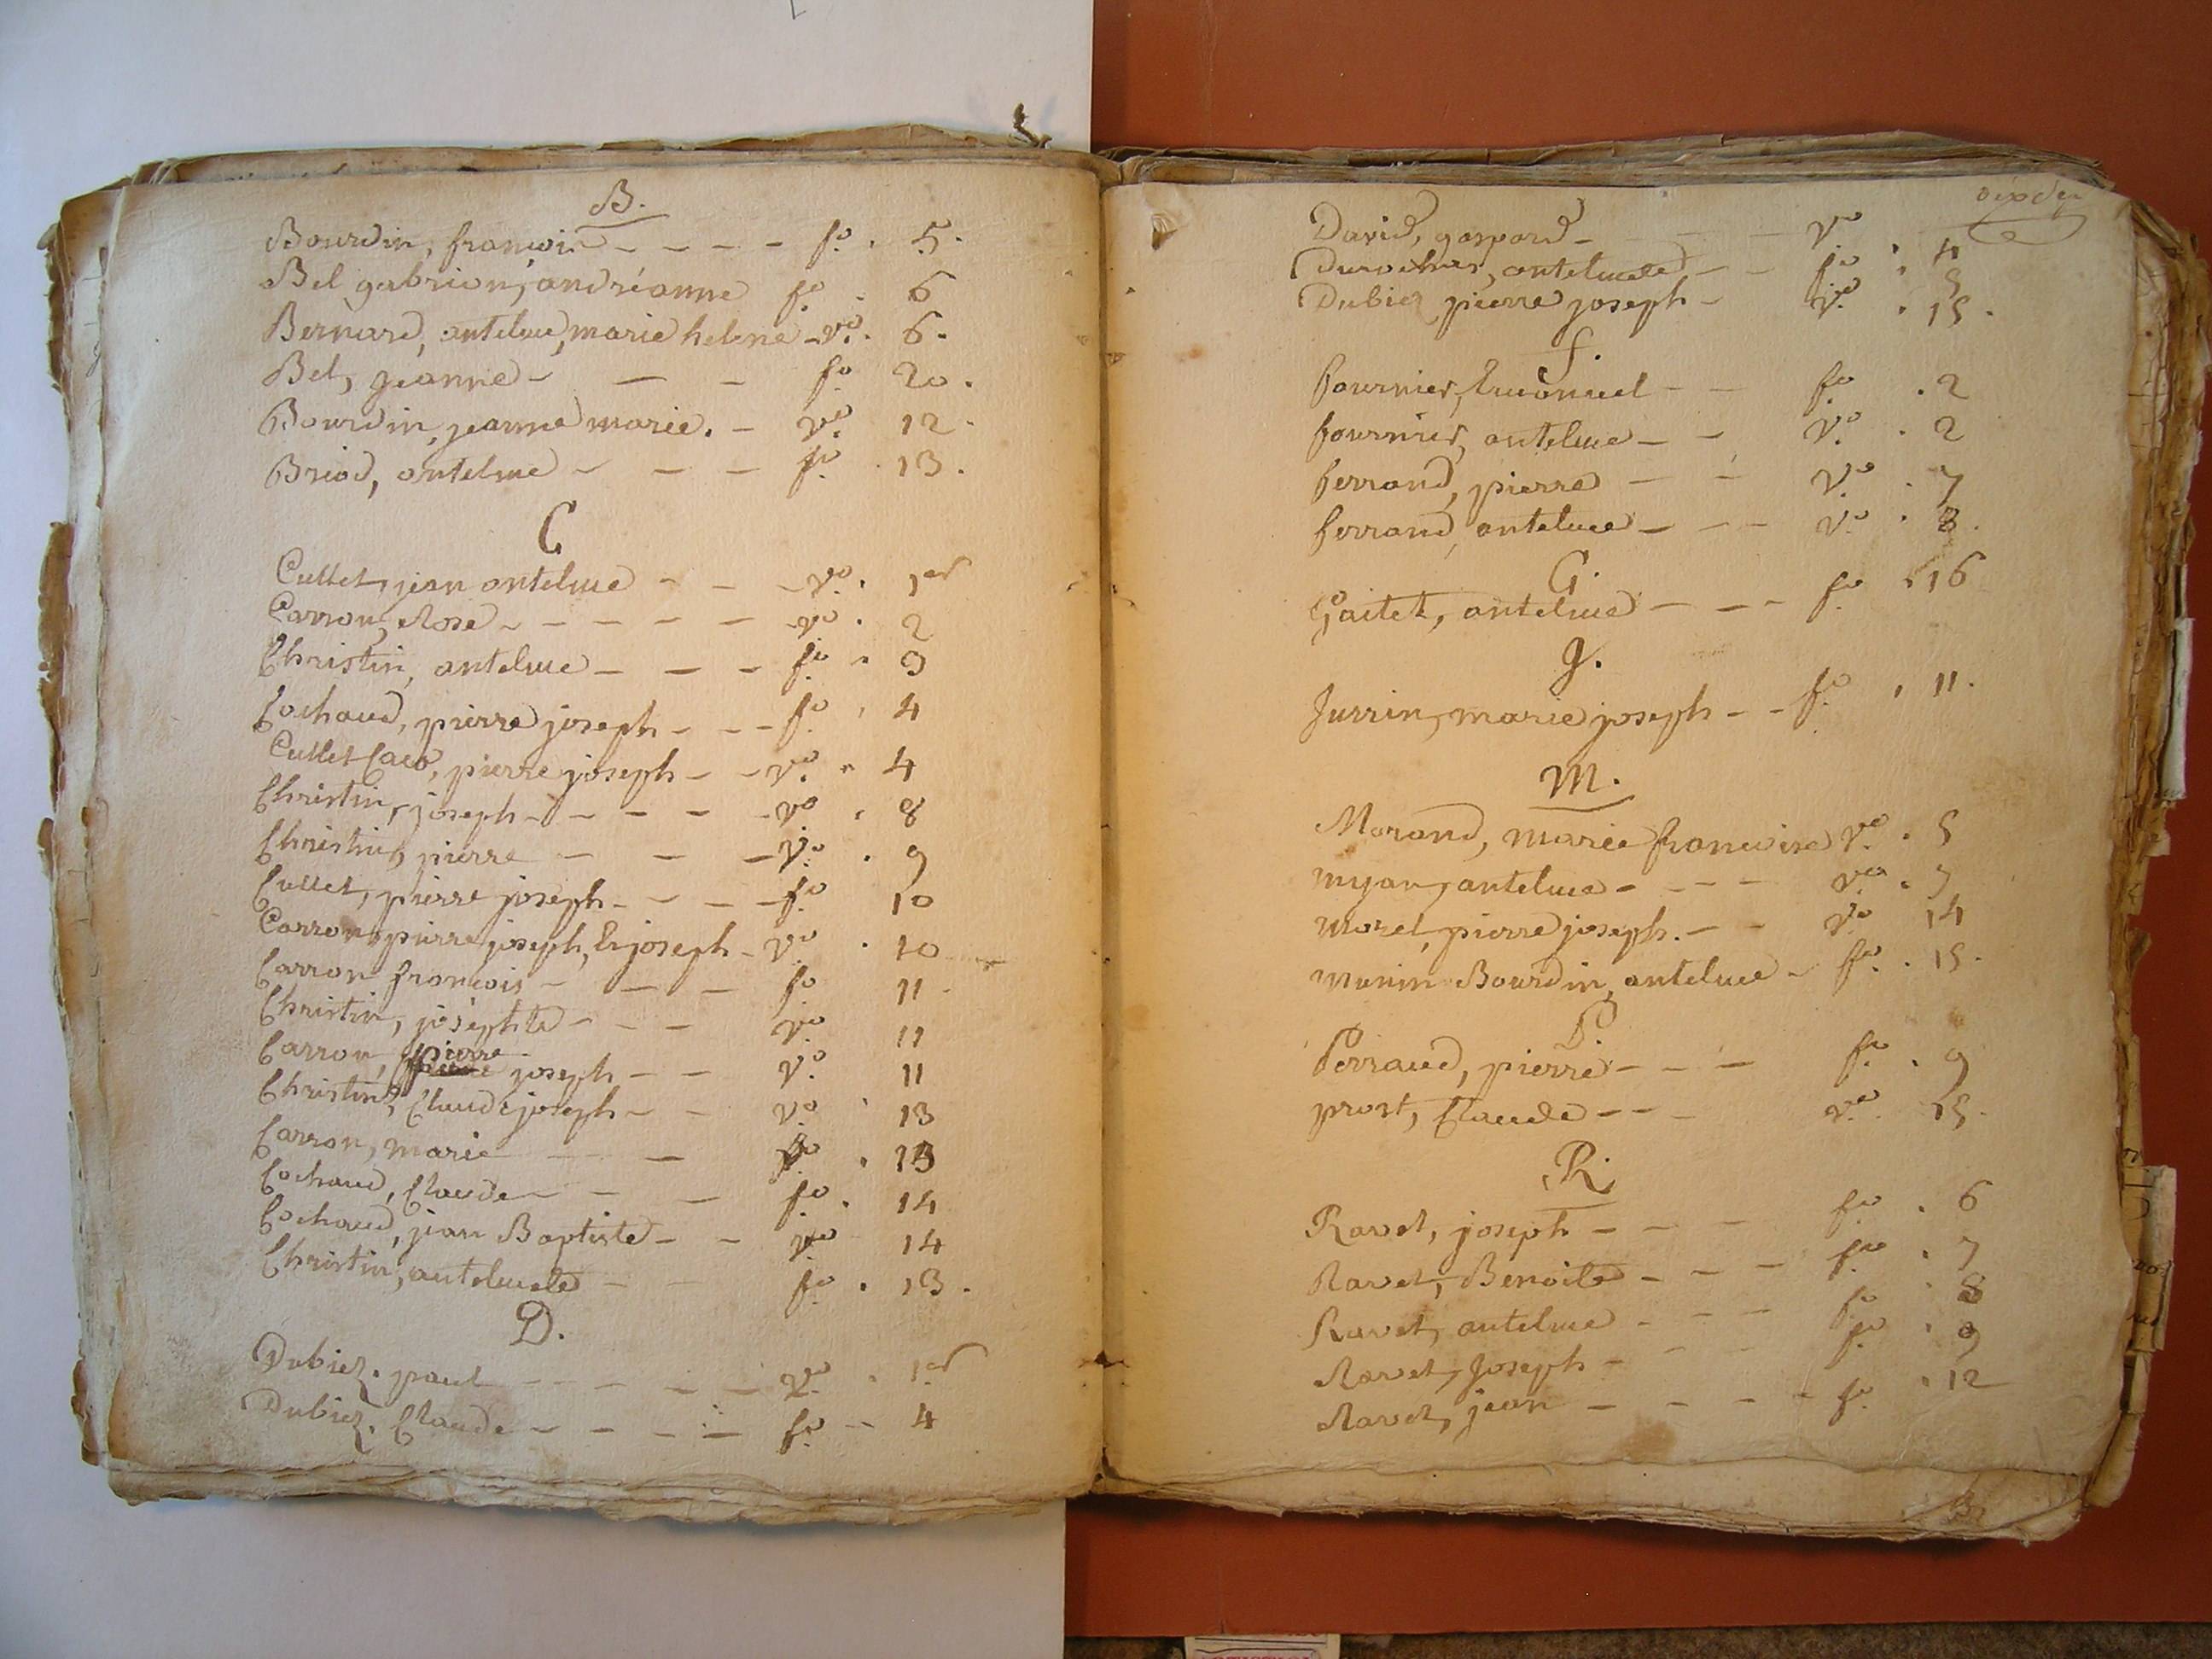 B.
Bourdin, françois - - - - fo. 5.
Bel gabrion, andréanne fo. 6
Bernard, antelme, marie helene - vo. 6.
Bel, jeanne - - - fo. 20.
Bourdin, jeanne marie. - vo. 12.
Briod, antelme - - - fo. 13.
C
Cullet, jean antelme - - - vo. 1er
Carron, Rose - - - - - vo. 2
Christin, antelme - - - fo. 3
Cochaud, pierre joseph - - - fo. 4
Cullet Caco, pierre joseph - - vo. 4
Christin, joseph - - - - - vo. 8
Christin, pierre - - - vo. 9
Cullet, pierre joseph - - - - fo. 10
Carron, pierre joseph, Er joseph - vo. 10
Carron françois - - - fo. 11.
Christin, josephte - - - vo. 11
Carron, pierre joseph - - vo. 11
Christin, Claude joseph - - vo. 13
Carron, marie - - - 13
Cochaud, Claude - - - fo. 14
Cochaud, jean Baptiste - - vo 14
Christin, antelmete - - fo. 13.
D.
Dubiez. paul - - - - - - vo. 1er
Dubiez. Claude - - - - - fo. - 4
David, gaspard - - - vo
Durochat, antelmete - - fo. 4
Dubiez pierre joseph - vo. 15.
f.
fournier, Emanuel - - fo. 2
fournier, antelme - - vo. 2
ferrand, pierre - - vo. 7
ferrand, antelme - - - vo. 8.
G.
Gaitet, antelme - - - fo. 16
J.
Jurrin, marie joseph - - fo. 11.
M.
Morand, marie françoise vo. 5
myan, antelme - - - - vo. 7
morel, pierre joseph. - - vo. 14
munin Bourdin, antelme - fo. 15.
P.
Perraud, pierre - - - fo. 9
prost, Claude - - - vo. 15.
R.
Ravet, joseph - - - fo. 6
Ravet, Benoite - - - - fo. 7
Ravet, antelme - - - fo. 8
Ravet, Joseph - - - fo. 9
Ravet, jean - - - - fo. 12